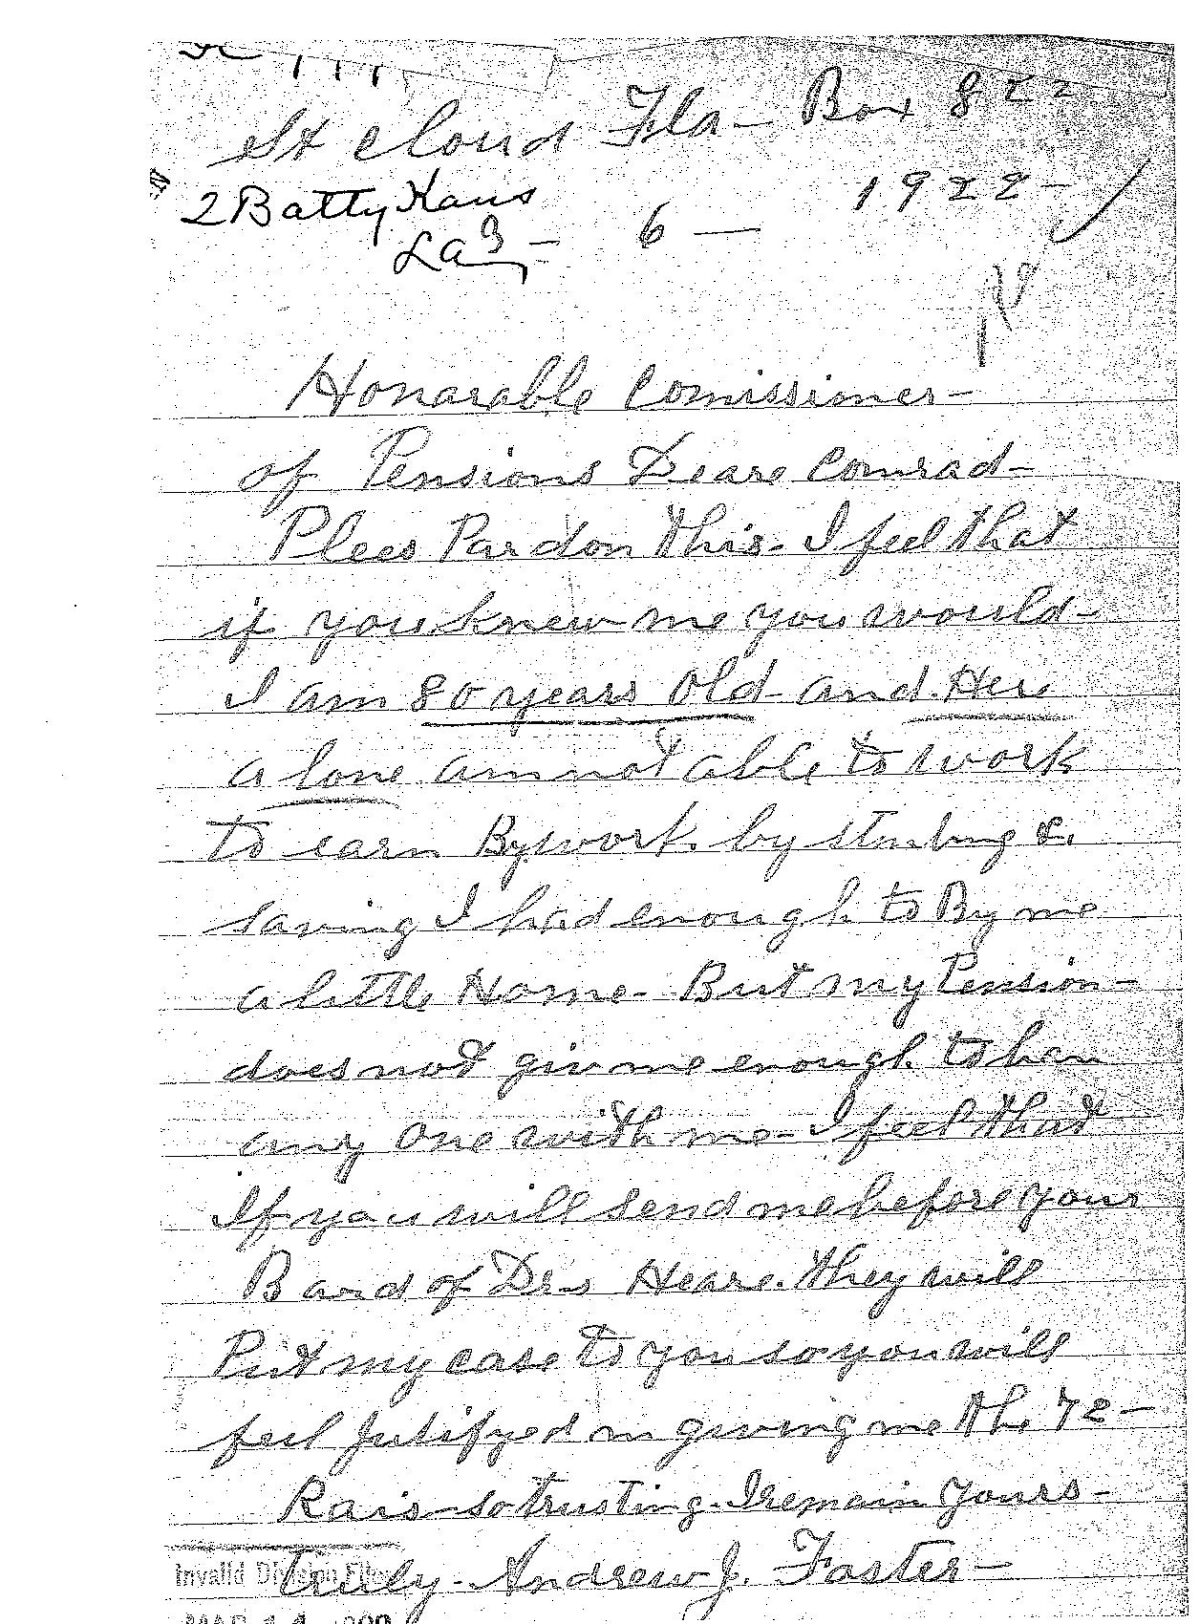 St Cloud Fla - Box 822
2 Batty Kans
6 - 1922 -
Honarable Comissioner -
of Pensions Deare Comrad -
Plees Pardon this - I feel that
if you knew me you would -
I am 80 years old - and Here
alone am not able to work
to earn By work. by &
saving I had enough to By me
a little Home - But my Pension -
does not giv me enough to hav
any one with me - I feel that
If you will send me before your
Bard of Drs Heare. they will
Put my case to you so you will
feel Jutifyed in giving me the 72 -
Rais - so trusting. I remain yours -
truly - Andrew J. Foster -
Invalid Division File
MAR 14